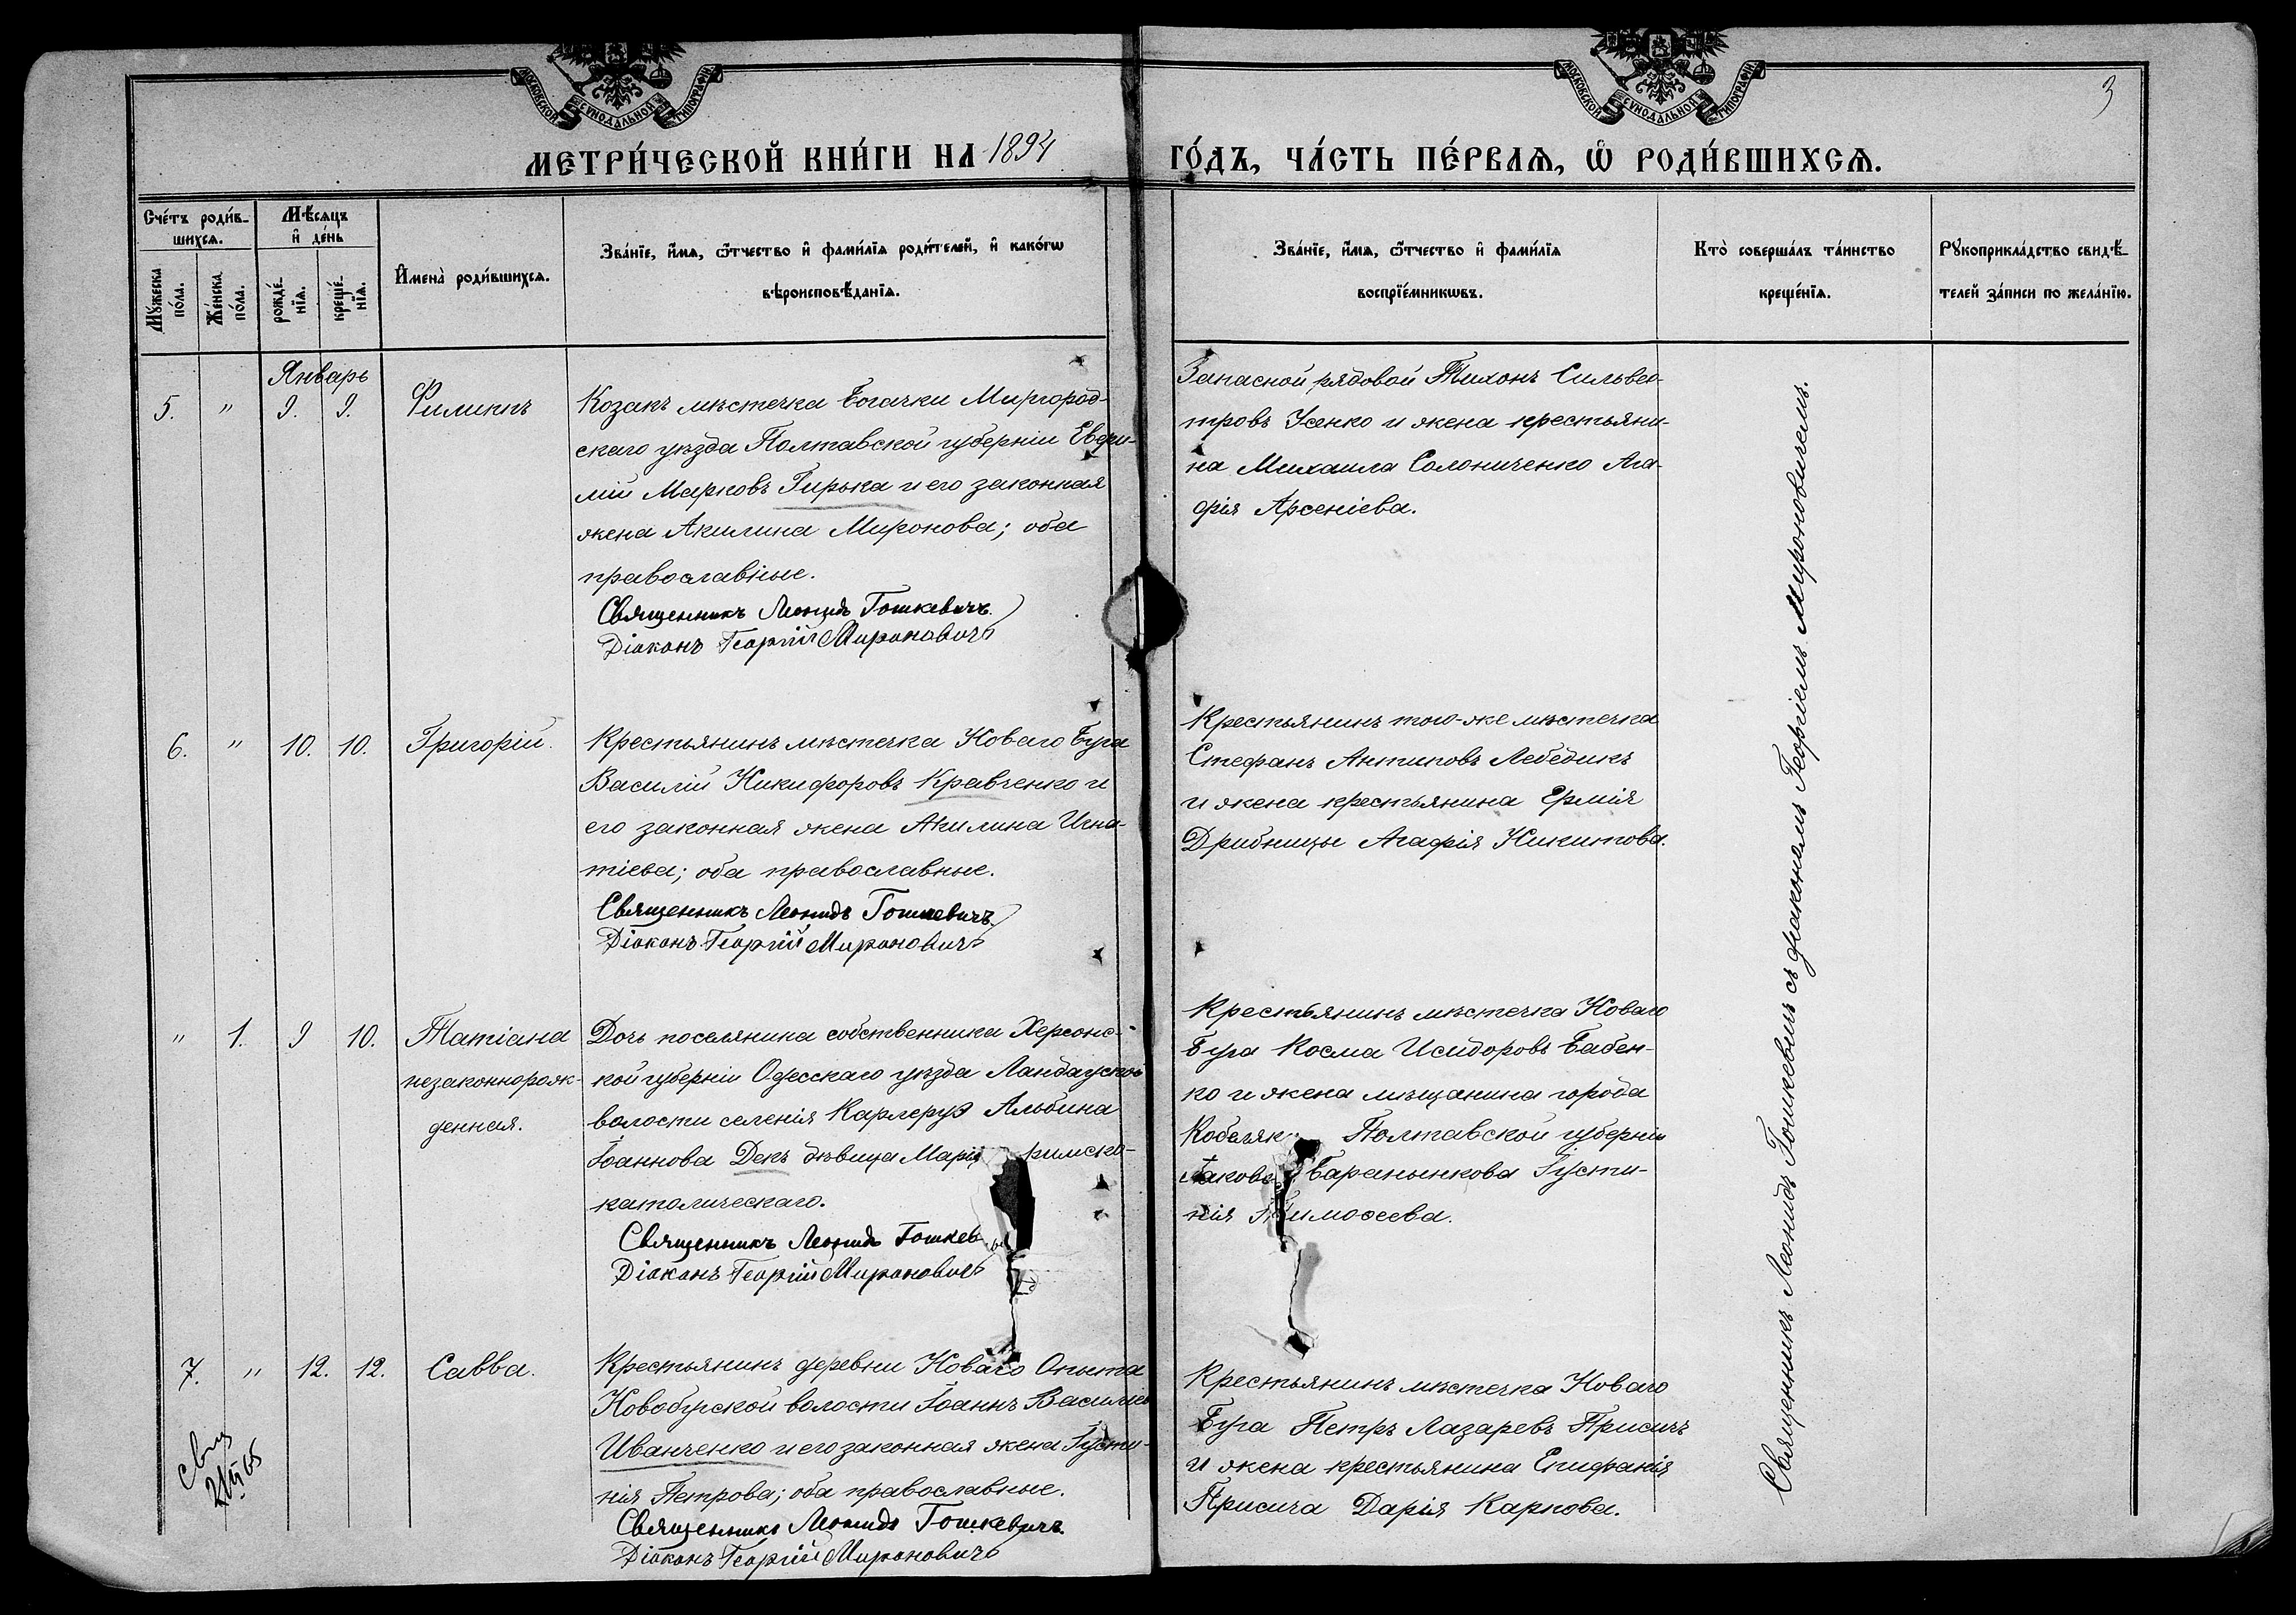 МОСКОВСКОЙ СѴНОДАЛЬНОЙ ТИПОГРАФІИ
МОСКОВСКОЙ СѴНОДАЛЬНОЙ ТИПОГРАФІИ
3
МЕТРИ́ЧЕСКОЙ КНИ́ГИ НА 1894 ГО́ДЪ, ЧА́СТЬ ПЕ́РВАѦ, Ѡ҆ РОДИ́ВШИХСѦ.
Сче́тъ роди́в-
шихсѧ.
Мꙋ́жеска по́ла.
Же́нска по́ла.
Мѣ́сѧцъ
и҆ де́нь
рожде́-
нїѧ.
креще́-
нїѧ.
И҆мена̀ роди́вшихсѧ.
Зва́нїе, и҆́мѧ, ѻ҆́тчество и҆ фами́лїѧ роди́телей, и҆ како́гѡ
вѣроисповѣ́данїѧ.
Зва́нїе, и҆́мѧ, ѻ҆́тчество и҆ фами́лїѧ
воспрїе́мникѡвъ.
Кто̀ соверша́лъ та́инство
креще́нїѧ.
Рꙋкоприкла́дство свидѣ́-
телей за́писи по жела́нїю.
Январь
5. " 9. 9. Филиппъ
Козакъ мѣстечка Богачки Миргород-
скаго уѣзда Полтавской губерніи Евфи-
мій Марковъ Гирька и его законная
жена Акилина Миронова; оба
православные.
Священникъ Леонидъ Гошкевичъ.
Діаконъ Георгій Мироновичъ
Запасной рядовой Тихонъ Сильвес-
тровъ Усенко и жена крестьяни-
на Михаила Солониченко Ага-
фія Арсеніева.
6. " 10. 10. Григорій.
Крестьянинъ мѣстечка Новаго Буга
Василій Никифоровъ Кравченко и
его законная жена Акилина Игна-
тіева; оба православные.
Священникъ Леонидъ Гошкевичъ
Діаконъ Георгій Мироновичъ
Крестьянинъ того-же мѣстечка
Стефанъ Антиповъ Лебедикъ
и жена крестьянина Ермія
Дрибницы Агафія Никитова.
" 1. 9 10. Татіана
незаконнорож-
денная.
Дочь поселянина собственника Херсонс-
кой губерніи Одесскаго уѣзда Ландауской
волости селенія Карлеруэ Альбина
Іоаннова Декъ дѣвица Марія римско-
католическаго.
Священникъ Леонидъ Гошкев
Діаконъ Георгій Мироновичъ
Крестьянинъ мѣстечка Новаго
Буга Косма Исидоровъ Бабен-
ко и жена мѣщанина города
Кобеляк Полтавской губерніи
Іакова Бараньикова Іусти-
нія Тимофеева.
7. " 12. 12. Савва.
Крестьянинъ деревни Новаго Опыта
Новобугской волости Іоаннъ Василіев
Иванченко и его законная жена Іусти-
нія Петрова; оба православные.
Священникъ Леонидъ Гошкевичъ.
Діаконъ Георгій Мироновичъ
Крестьянинъ мѣстечка Новаго
Буга Петръ Лазаревъ Присичъ
и жена крестьянина Епифанія
Присича Дарія Карпова.
Священникъ Леонидъ Гошкевичъ съ діакономъ Георгіемъ Мироновичемъ.